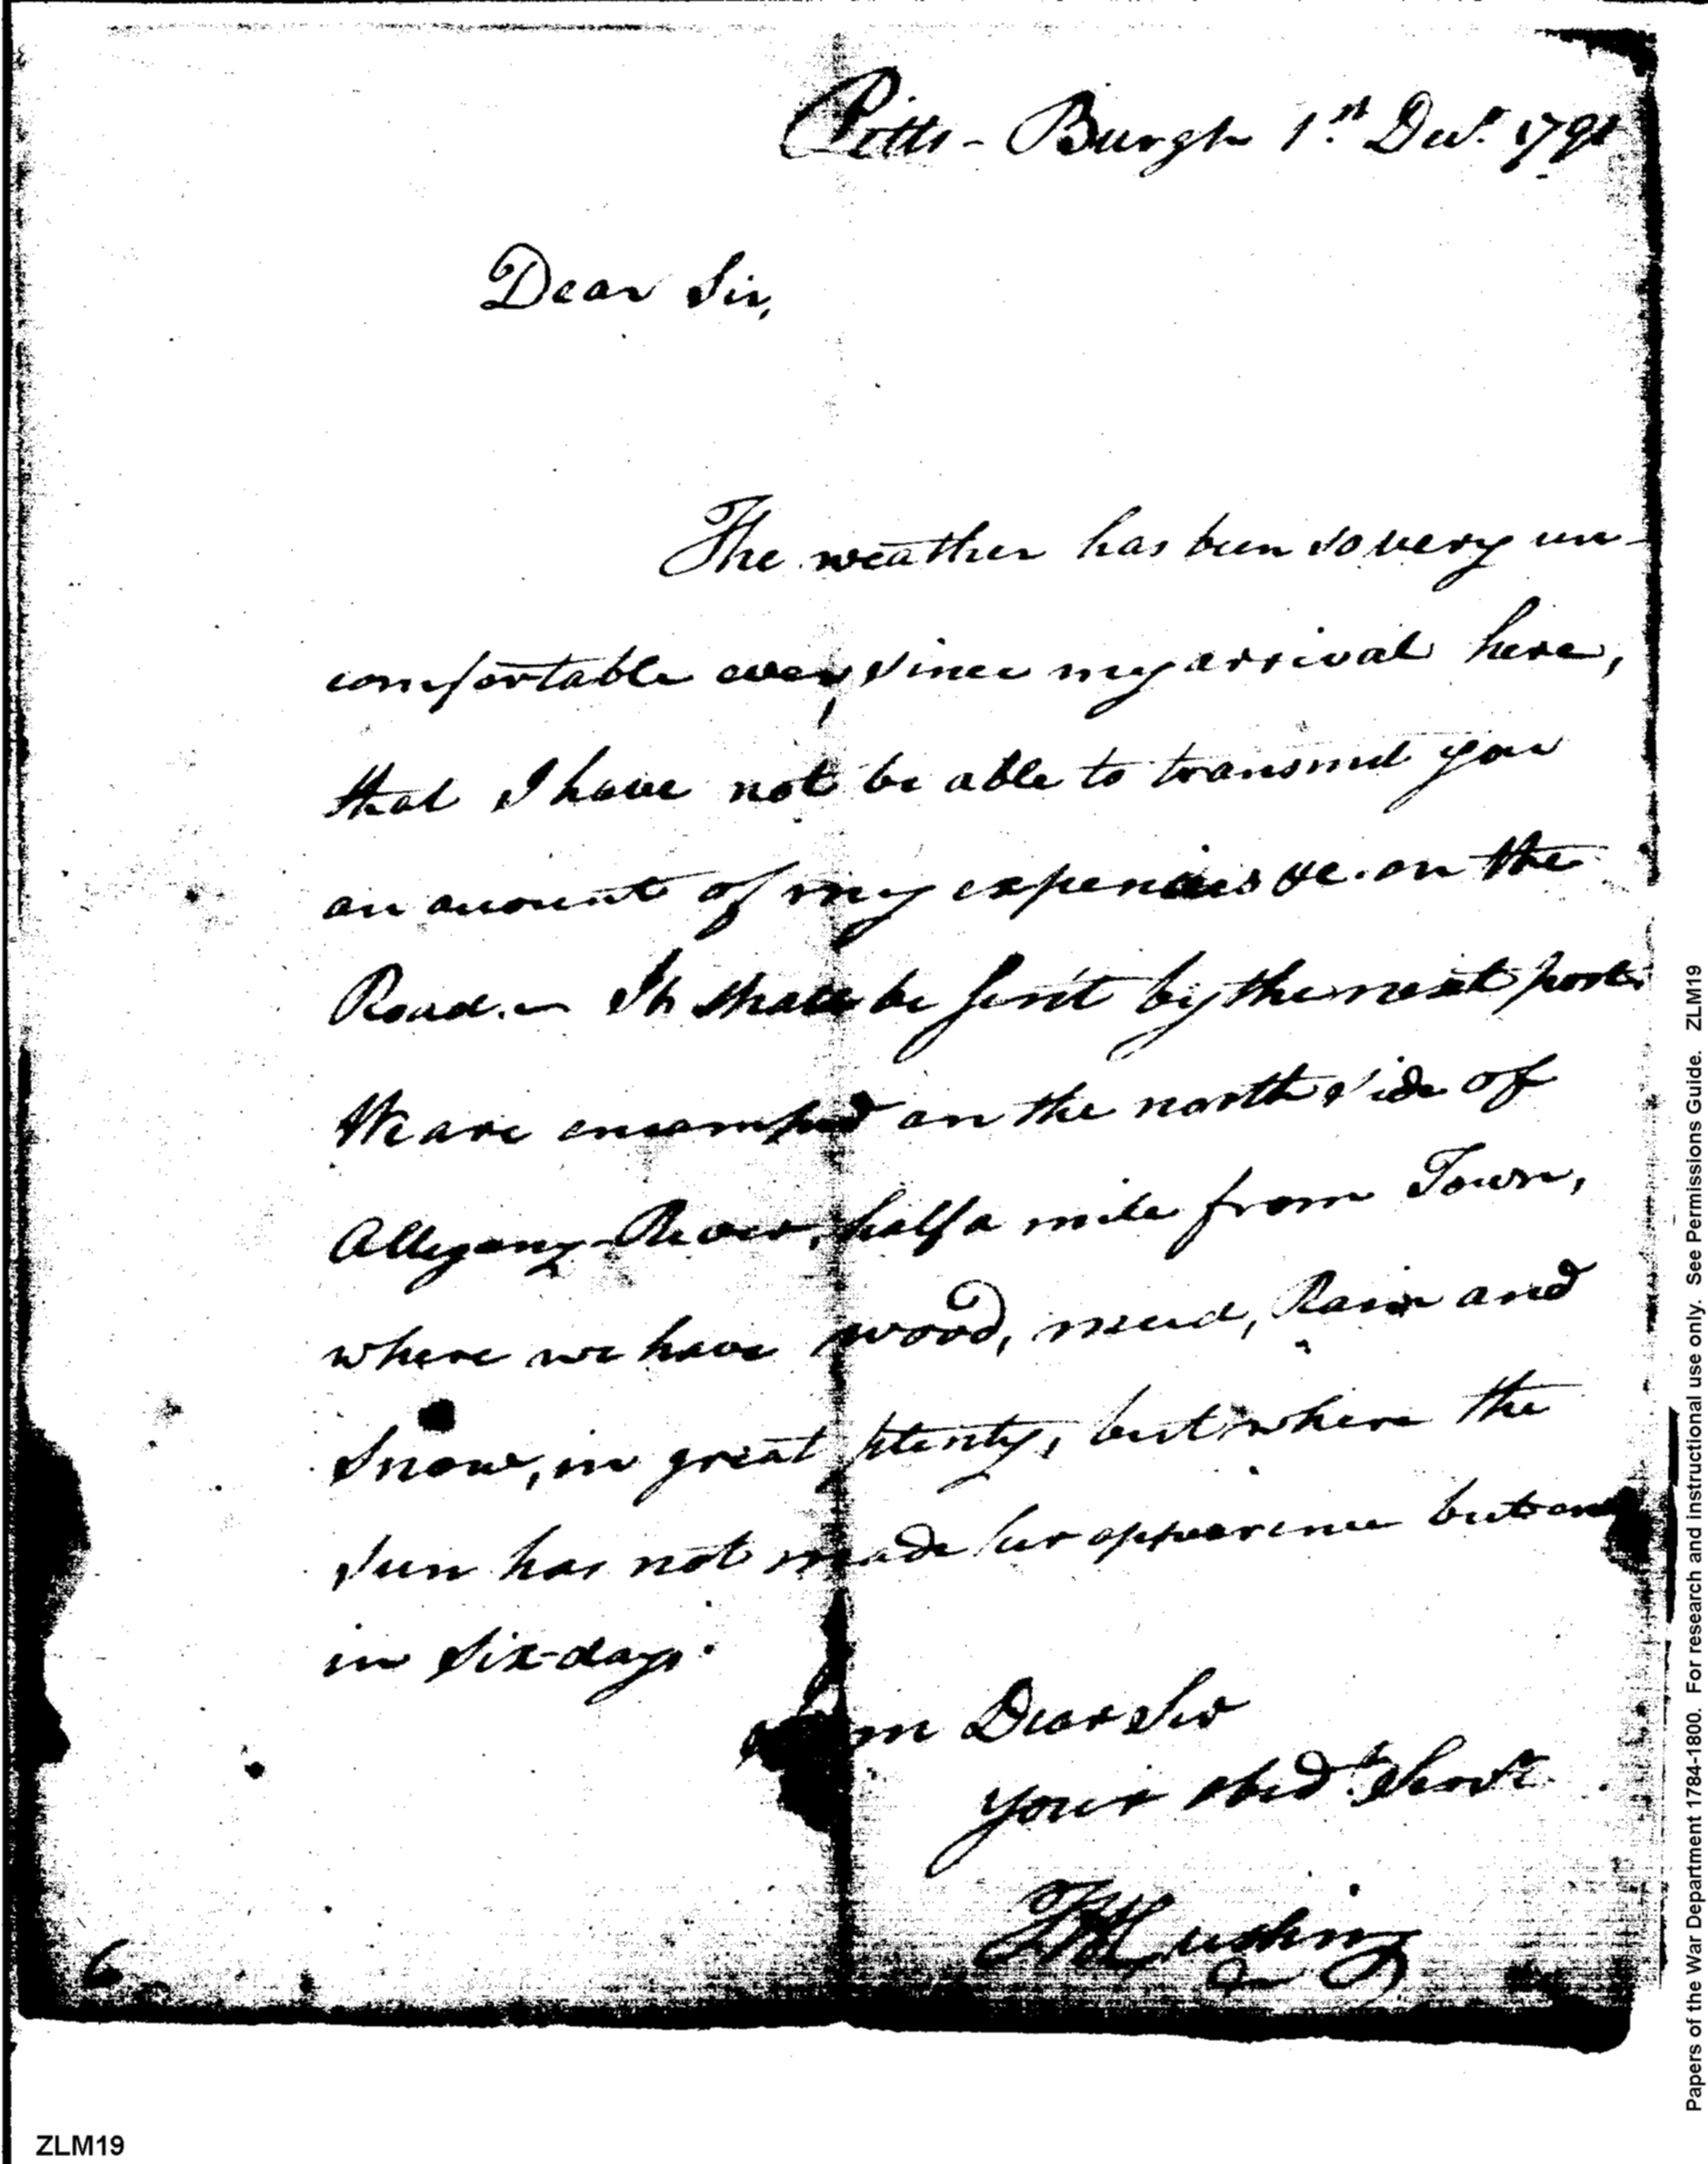 Pitts-Burgh 1st Decr. 1791
Dear Sir,
The weather has been so very un-
comfortable ever, since my arrival here,
that I have not be able to transmit you
an account of my expences &c. on the
Road. - It shall be sent by the next post.
We are encamped on the north side of
Allegany-River, half a mile from Town,
where we have wood, mud, Rain and
Snow, in great plenty, but where the
sun has not made her appearance but once
in six-days.
am Dear Sir
your obedt. Servt.
THCushing
6
ZLM19
Papers of the War Department 1784-1800. For research and instructional use only. See Permissions Guide. ZLM19